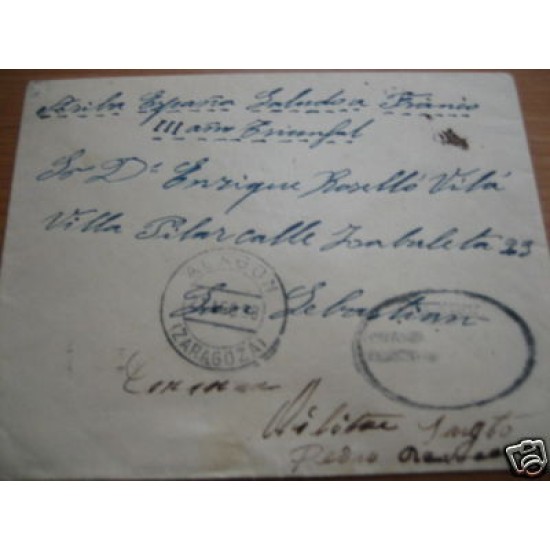 Ariba España Saludo a Franco
III año Triunfal
Sr D. Enrique Roselló Vilá
Villa Pilar calle Zabaleta 23
San Sebastian
ALAGON
(ZARAGOZA)
Militar Sargto
Pedro